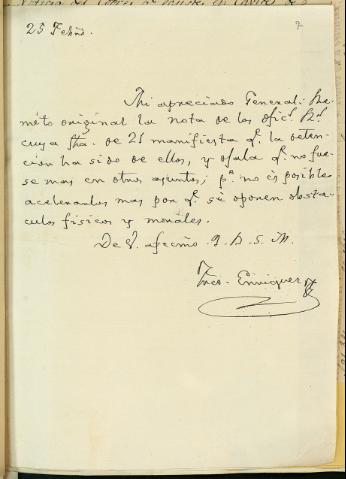 25 Febro.
Mi apreciado General: Re-
mito original la nota de los ofics. Rs.
cuya fha. de 21 manifiesta q. la deten-
cion ha sido de ellos, y ojala q. no fue-
se mas en otros asuntos; p. no es posible
acelerarlos mas por q. se oponen obsta-
culos fisicos y morales.
De V. afecmo. Q. B. S. M.
Enriquez